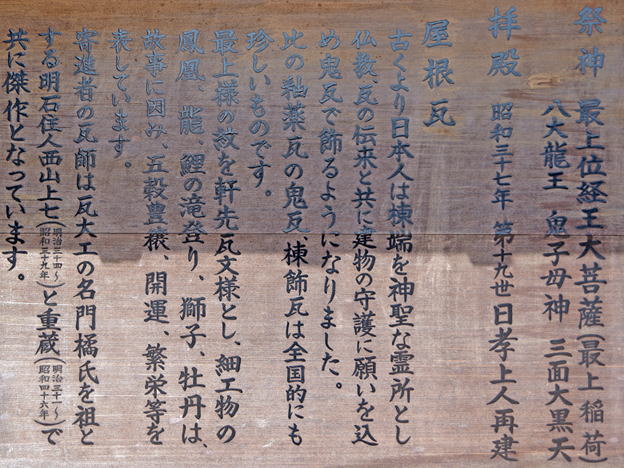 祭神 最上位経王大菩薩(最上稲荷)
八大龍王 鬼子母神 三面大黒天
拝殿 昭和三十七年 第十九世日孝上人再建
屋根瓦
古くより日本人は棟端を神聖な霊所とし
仏教、瓦の伝来と共に建物の守護に願いを込
め鬼瓦で飾るようになりました。
此の釉薬瓦の鬼瓦、棟飾瓦は全国的にも
珍しいものです。
最上様の紋を軒先瓦文様とし、細工物の
鳳凰、龍、鯉の滝登り、獅子、牡丹は、
故事に因み、五穀豊穣、開運、繁栄等を
表しています。
寄進者の瓦師は瓦大工の名門橘氏を祖と
する明石住人西山上七(明治三十四〜昭和三十九年)と重蔵(明治三十一〜昭和四十六年)で
共に傑作となっています。